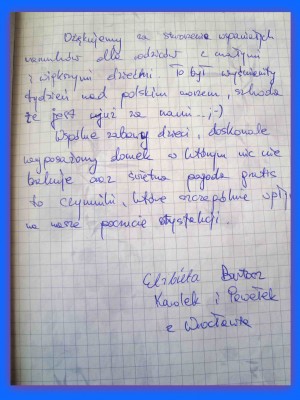 Dziękujemy za stworzenie wspaniałych
warunków dla rodziców z małymi
i większymi dziećmi. To był wyśmienity
tydzień nad polskim morzem, szkoda
że jest już za nami...;-)
Wspólne zabawy dzieci, doskonale
wyposażony domek w którym nic nie
brakuje oraz świetna pogoda gratis
to czynniki, które szczególnie
na nasze poczucie satysfakcji.
Elżbieta Bartosz
Karolek i Pawełek
z Wrocławia